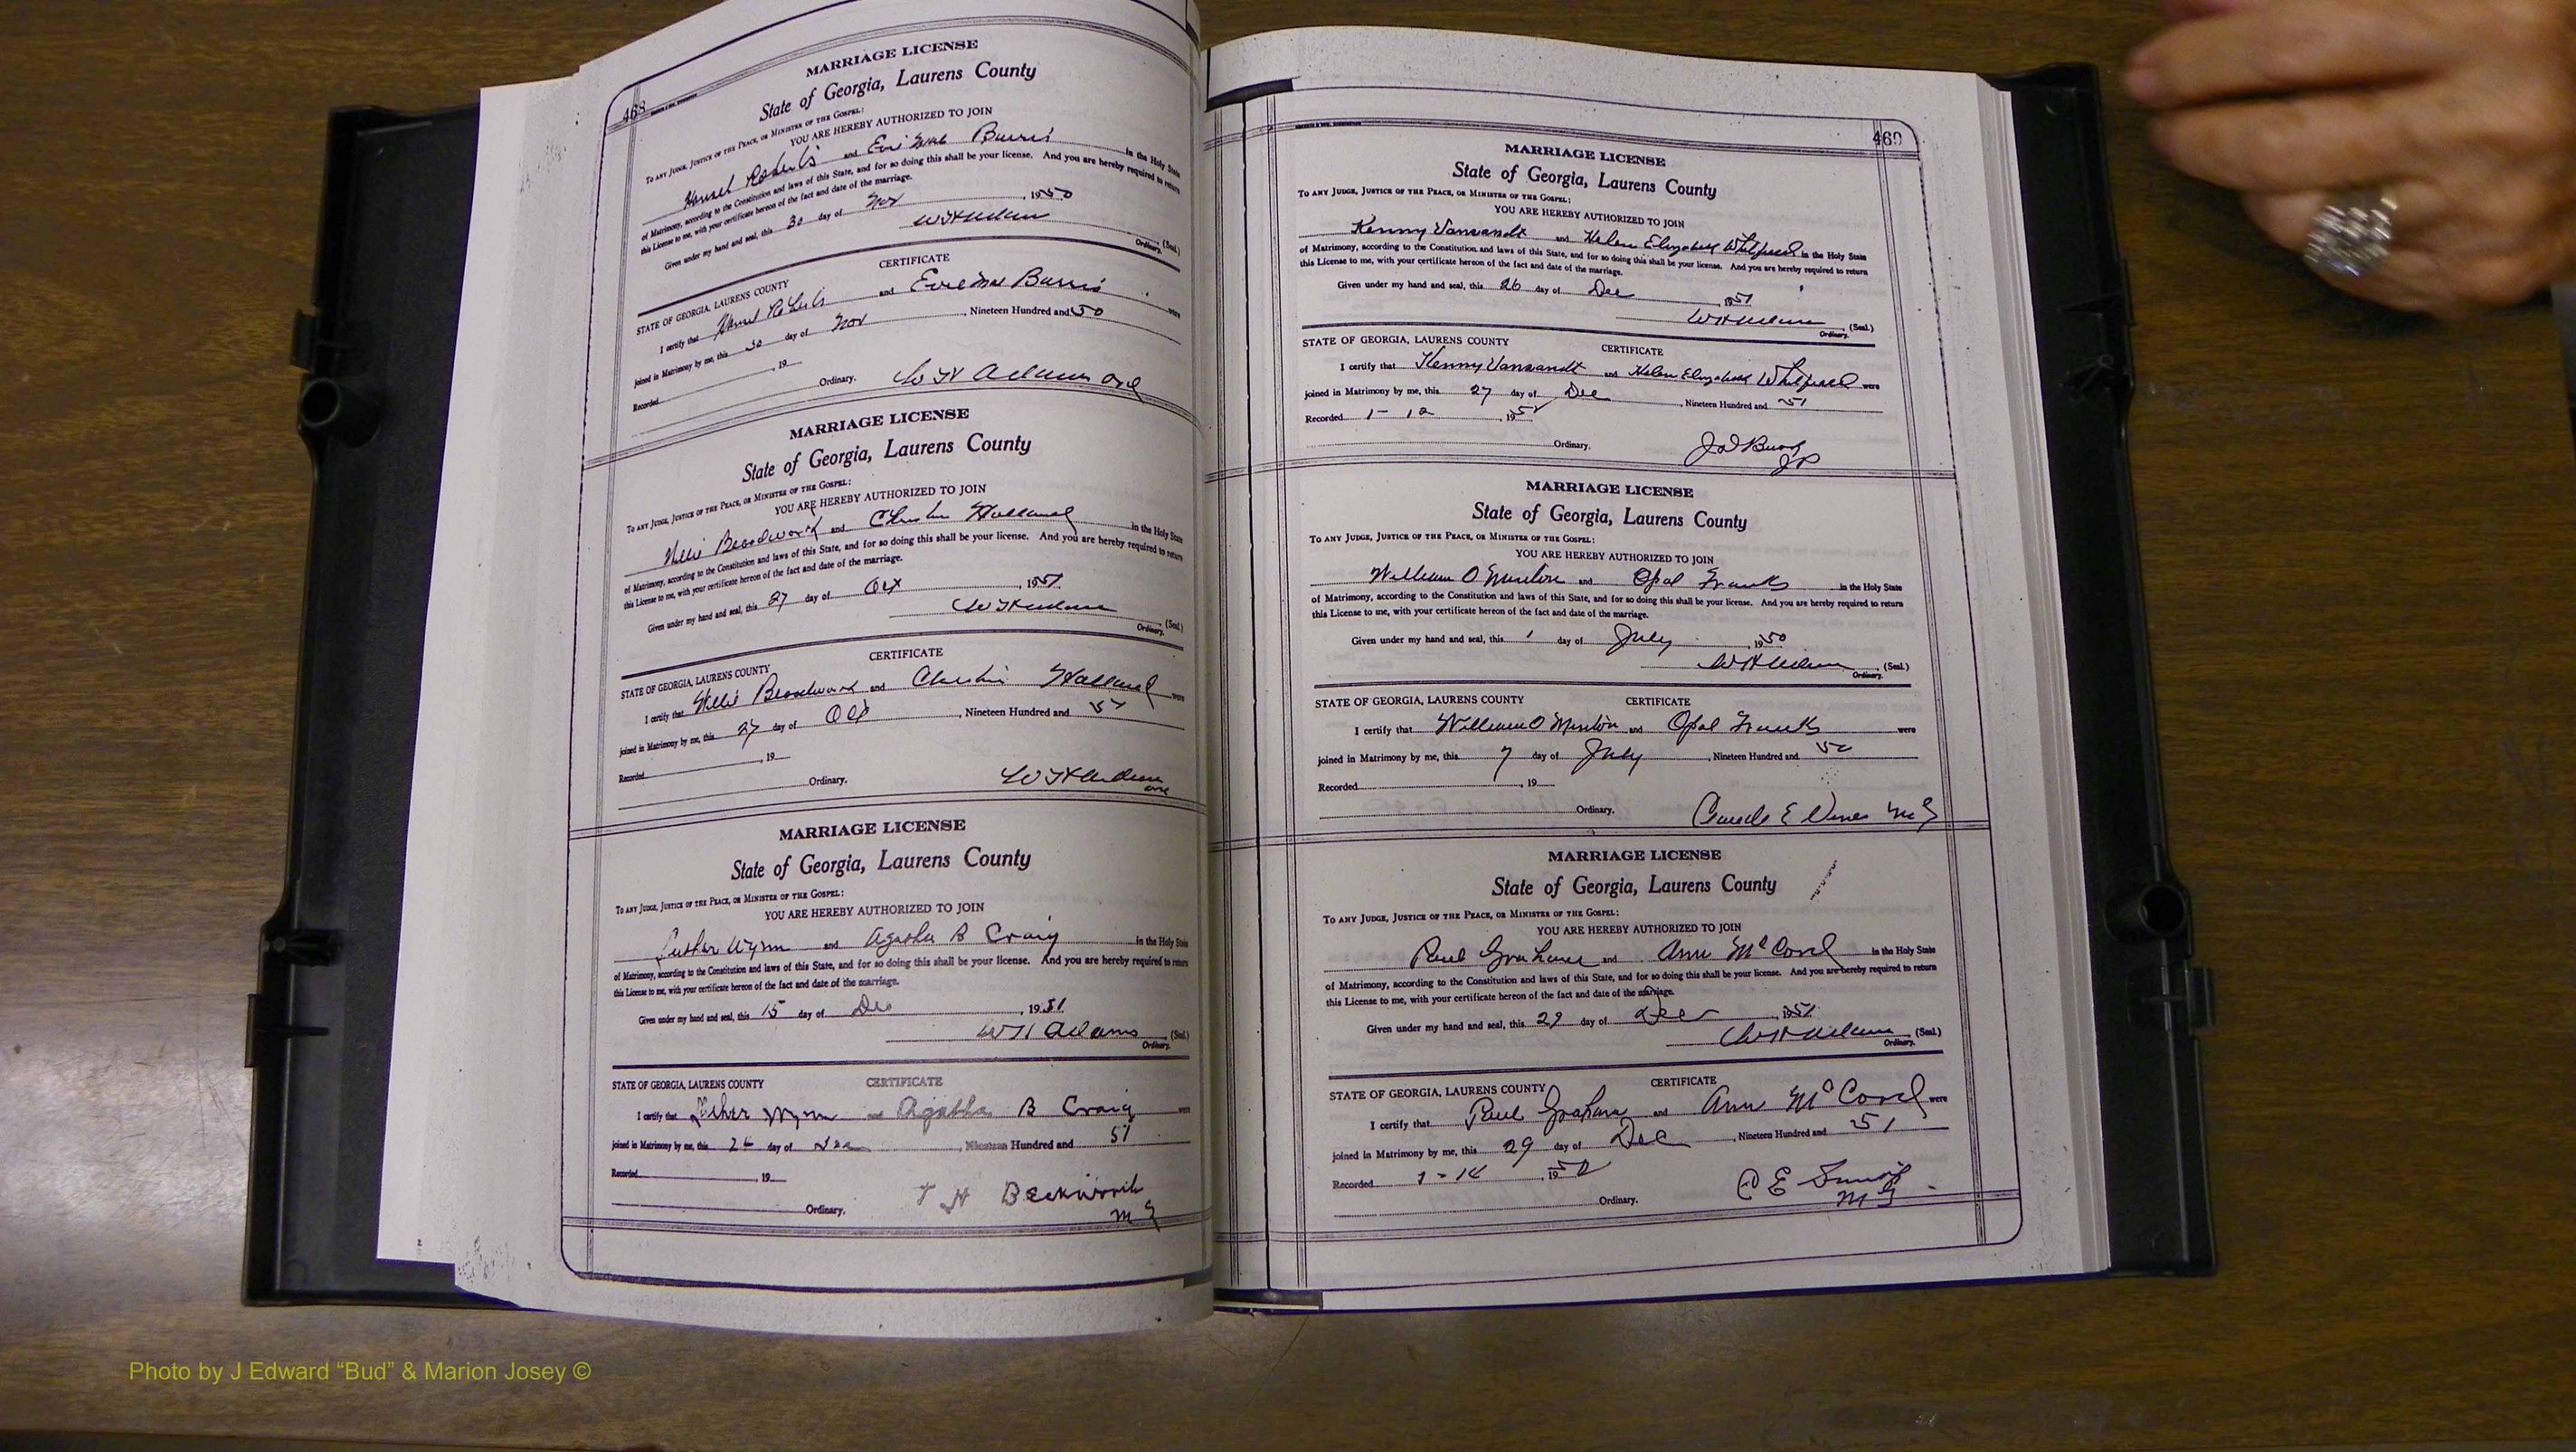 468
MARRIAGE LICENSE
State of Georgia, Laurens County
TO ANY JUDGE, JUSTICE OF THE PEACE, OR MINISTER OF THE GOSPEL:
YOU ARE HEREBY AUTHORIZED TO JOIN
Roberts and Burris in the Holy State
of Matrimony, according to the Constitution and laws of this State, and for so doing this shall be your license. And you are hereby required to return
this License to me, with your certificate hereon of the fact and date of the marriage.
Given under my hand and seal, this 30 day of Nov, 1950
W H Adams (Seal.)
Ordinary.
CERTIFICATE
STATE OF GEORGIA, LAURENS COUNTY
I certify that Roberts and Burris were
joined in Matrimony by me, this 30 day of Nov, Nineteen Hundred and 50
Recorded, 19
Ordinary. W H Adams Ord
MARRIAGE LICENSE
State of Georgia, Laurens County
TO ANY JUDGE, JUSTICE OF THE PEACE, OR MINISTER OF THE GOSPEL:
YOU ARE HEREBY AUTHORIZED TO JOIN
Willie and Holland in the Holy State
of Matrimony, according to the Constitution and laws of this State, and for so doing this shall be your license. And you are hereby required to return
this License to me, with your certificate hereon of the fact and date of the marriage.
Given under my hand and seal, this 27 day of Oct, 1951
W H Adams (Seal.)
Ordinary.
CERTIFICATE
STATE OF GEORGIA, LAURENS COUNTY
I certify that Willie and Holland were
joined in Matrimony by me, this 27 day of Oct, Nineteen Hundred and 51
Recorded, 19
Ordinary. W H Adams
MARRIAGE LICENSE
State of Georgia, Laurens County
TO ANY JUDGE, JUSTICE OF THE PEACE, OR MINISTER OF THE GOSPEL:
YOU ARE HEREBY AUTHORIZED TO JOIN
Luther Wynn and Agatha B Craig in the Holy State
of Matrimony, according to the Constitution and laws of this State, and for so doing this shall be your license. And you are hereby required to return
this License to me, with your certificate hereon of the fact and date of the marriage.
Given under my hand and seal, this 15 day of Dec, 1951
W H Adams (Seal.)
Ordinary.
CERTIFICATE
STATE OF GEORGIA, LAURENS COUNTY
I certify that Luther Wynn and Agatha B Craig were
joined in Matrimony by me, this day of Dec, Nineteen Hundred and 51
Recorded, 19
Ordinary. T H Beckworth
M G
469
MARRIAGE LICENSE
State of Georgia, Laurens County
TO ANY JUDGE, JUSTICE OF THE PEACE, OR MINISTER OF THE GOSPEL:
YOU ARE HEREBY AUTHORIZED TO JOIN
Kenny Vanzandt and Helen Elizabeth Whitfield in the Holy State
of Matrimony, according to the Constitution and laws of this State, and for so doing this shall be your license. And you are hereby required to return
this License to me, with your certificate hereon of the fact and date of the marriage.
Given under my hand and seal, this 26 day of Dec, 1951
W H Adams (Seal.)
Ordinary.
STATE OF GEORGIA, LAURENS COUNTY CERTIFICATE
I certify that Kenny Vanzandt and Helen Elizabeth Whitfield were
joined in Matrimony by me, this 27 day of Dec, Nineteen Hundred and 51
Recorded 1-12, 1952
Ordinary. Bush
JP
MARRIAGE LICENSE
State of Georgia, Laurens County
TO ANY JUDGE, JUSTICE OF THE PEACE, OR MINISTER OF THE GOSPEL:
YOU ARE HEREBY AUTHORIZED TO JOIN
William O Minton and Opal Franks in the Holy State
of Matrimony, according to the Constitution and laws of this State, and for so doing this shall be your license. And you are hereby required to return
this License to me, with your certificate hereon of the fact and date of the marriage.
Given under my hand and seal, this 1 day of July, 1950
W H Adams (Seal.)
Ordinary.
STATE OF GEORGIA, LAURENS COUNTY CERTIFICATE
I certify that William O Minton and Opal Franks were
joined in Matrimony by me, this 7 day of July, Nineteen Hundred and 50
Recorded, 19
Ordinary. Claude E Vines M G
MARRIAGE LICENSE
State of Georgia, Laurens County
TO ANY JUDGE, JUSTICE OF THE PEACE, OR MINISTER OF THE GOSPEL:
YOU ARE HEREBY AUTHORIZED TO JOIN
Paul Graham and Ann McCord in the Holy State
of Matrimony, according to the Constitution and laws of this State, and for so doing this shall be your license. And you are hereby required to return
this License to me, with your certificate hereon of the fact and date of the marriage.
Given under my hand and seal, this 29 day of Dec, 1951
W H Adams (Seal.)
Ordinary.
STATE OF GEORGIA, LAURENS COUNTY CERTIFICATE
I certify that Paul Graham and Ann McCord were
joined in Matrimony by me, this 29 day of Dec, Nineteen Hundred and 51
Recorded, 1952
Ordinary. C E Smith
M G
Photo by J Edward “Bud” & Marion Josey ©